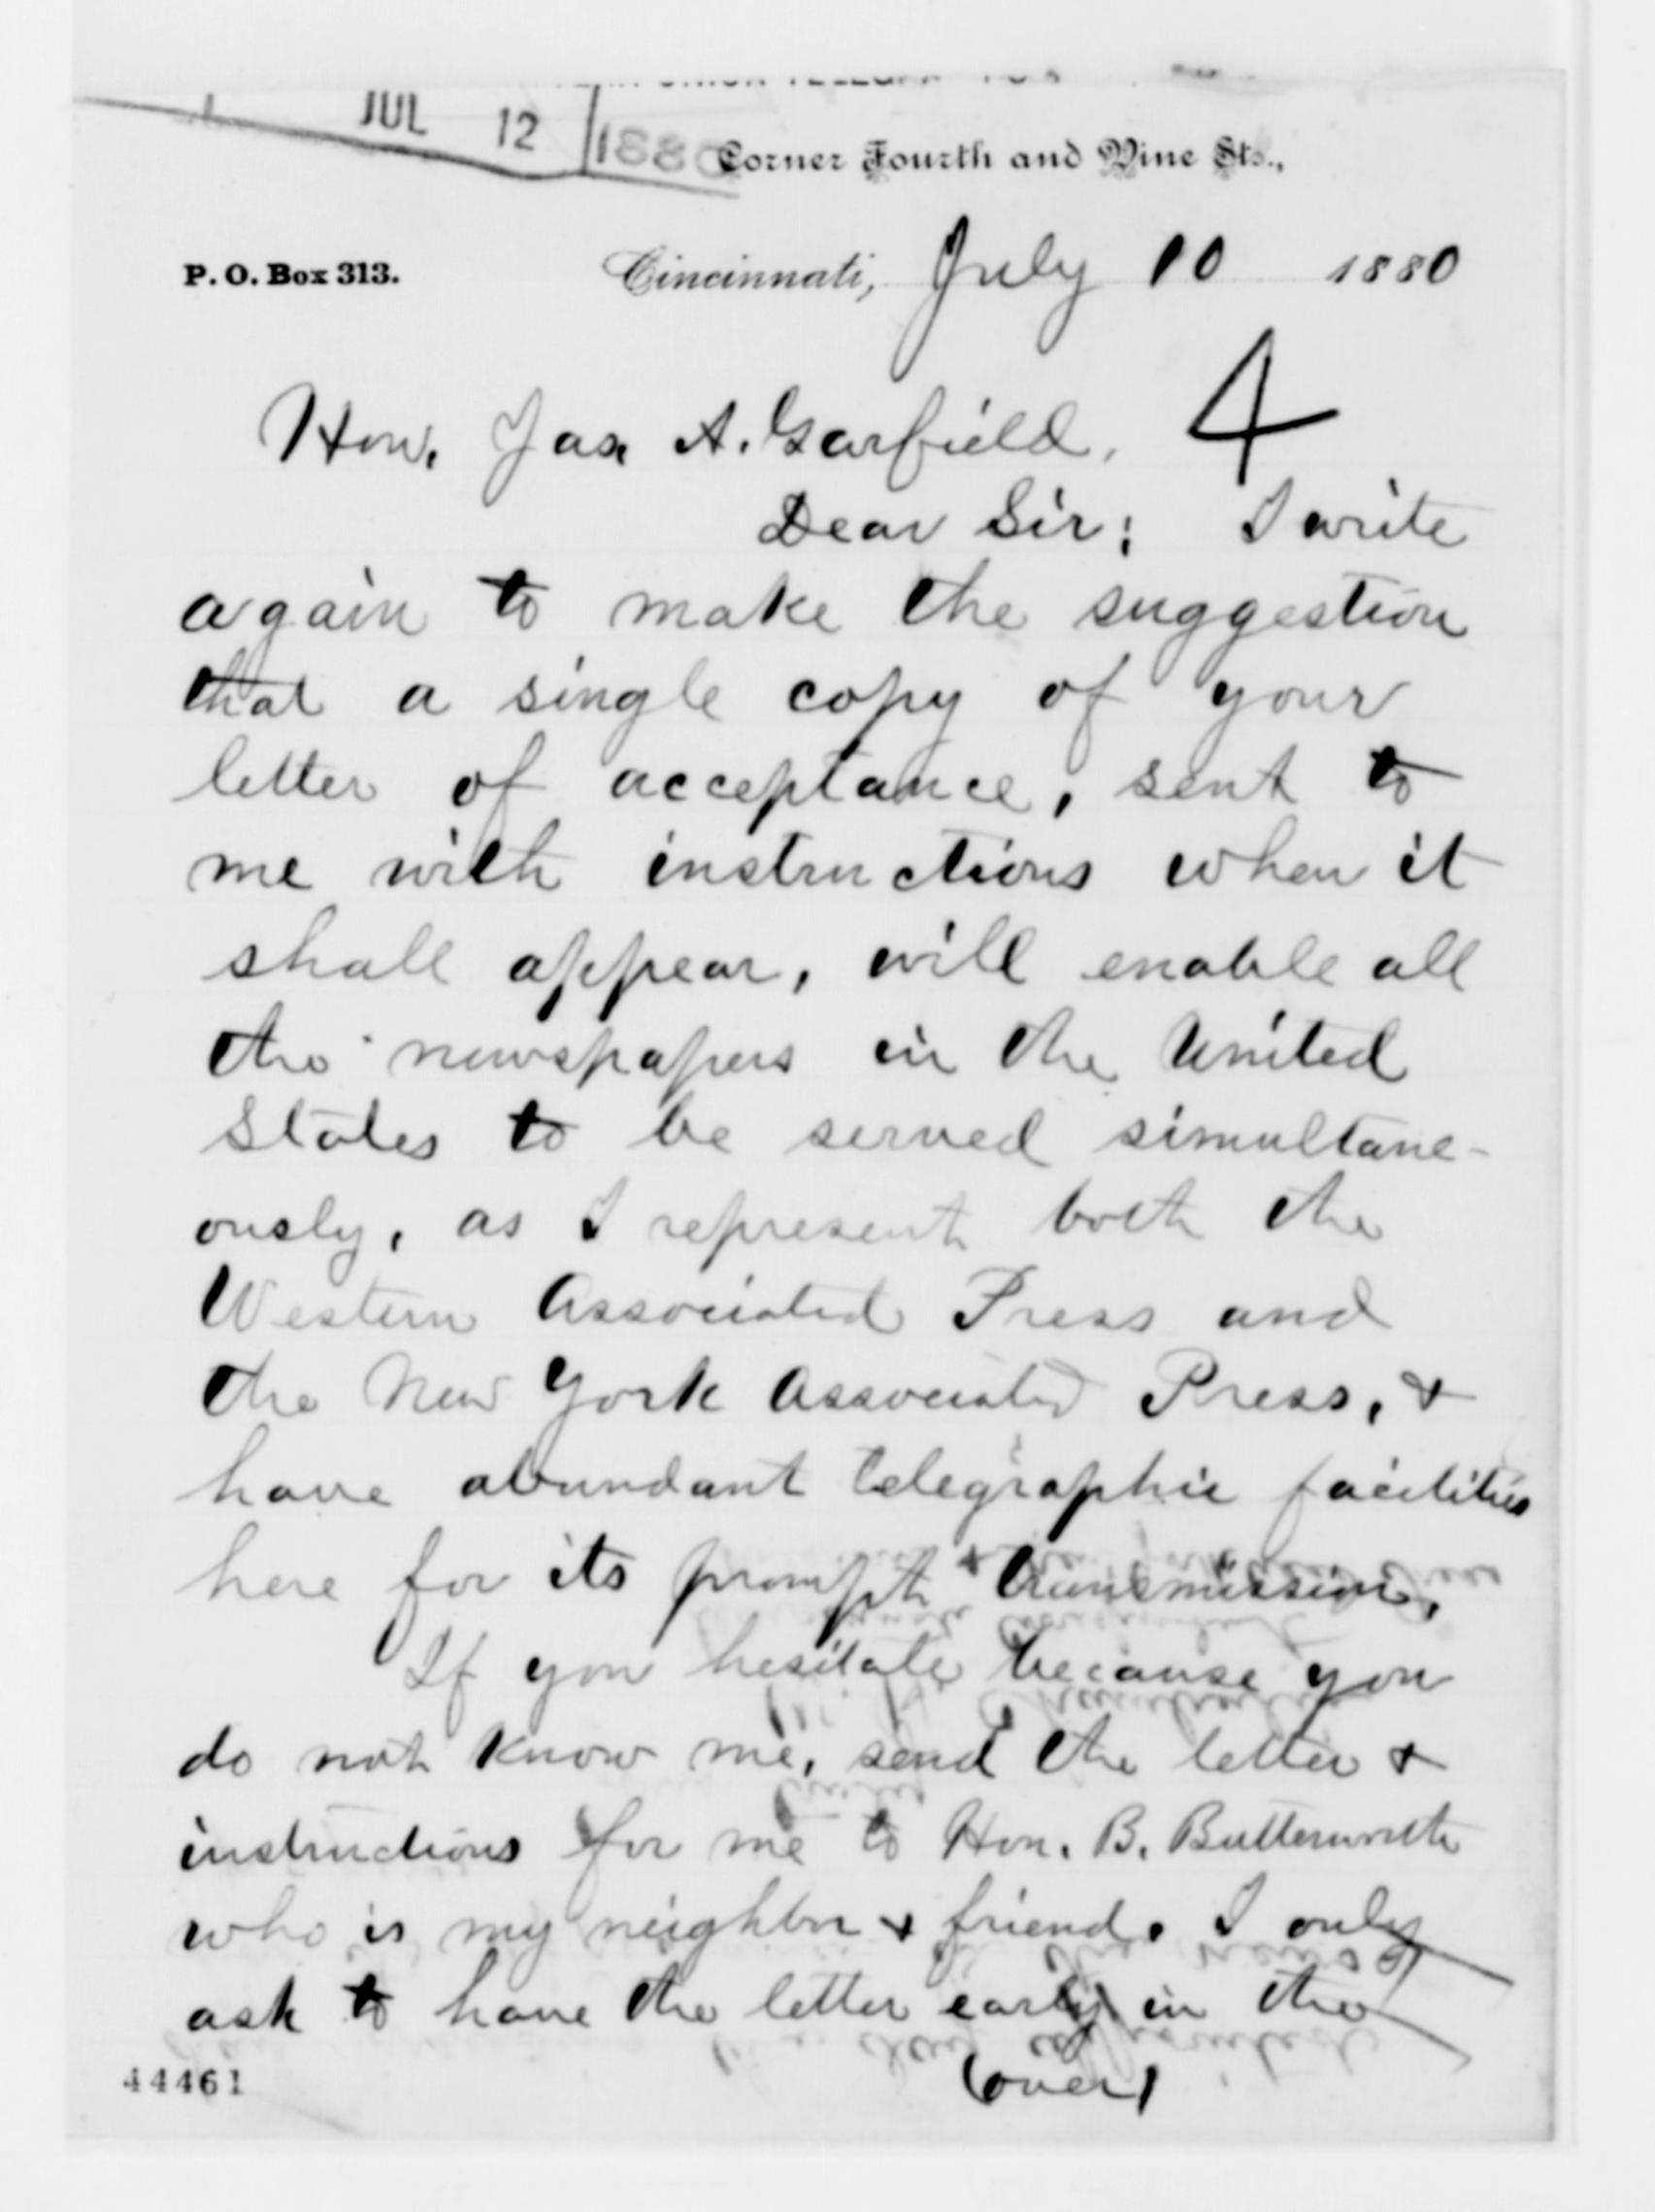 JUL 12 1880
Corner Fourth and Vine Sts.,
P. O. Box 313. Cincinnati, July 10 1880
4
Hon. Jas. A. Garfield,
Dear Sir: I write
again to make the suggestion
that a single copy of your
letter of acceptance, sent to
me with instructions when it
shall appear, will enable all
the newspapers in the United
States to be served simultane-
ously, as I represent both the
Western Associated Press and
the New York Associated Press, &
have abundant telegraphic facilities
here for its prompt transmission.
If you hesitate because you
do not know me, send the letter &
instructions for me to Hon. B. Butterworth
who is my neighbor & friend. I only
ask to have the letter early in the
(over)
44461